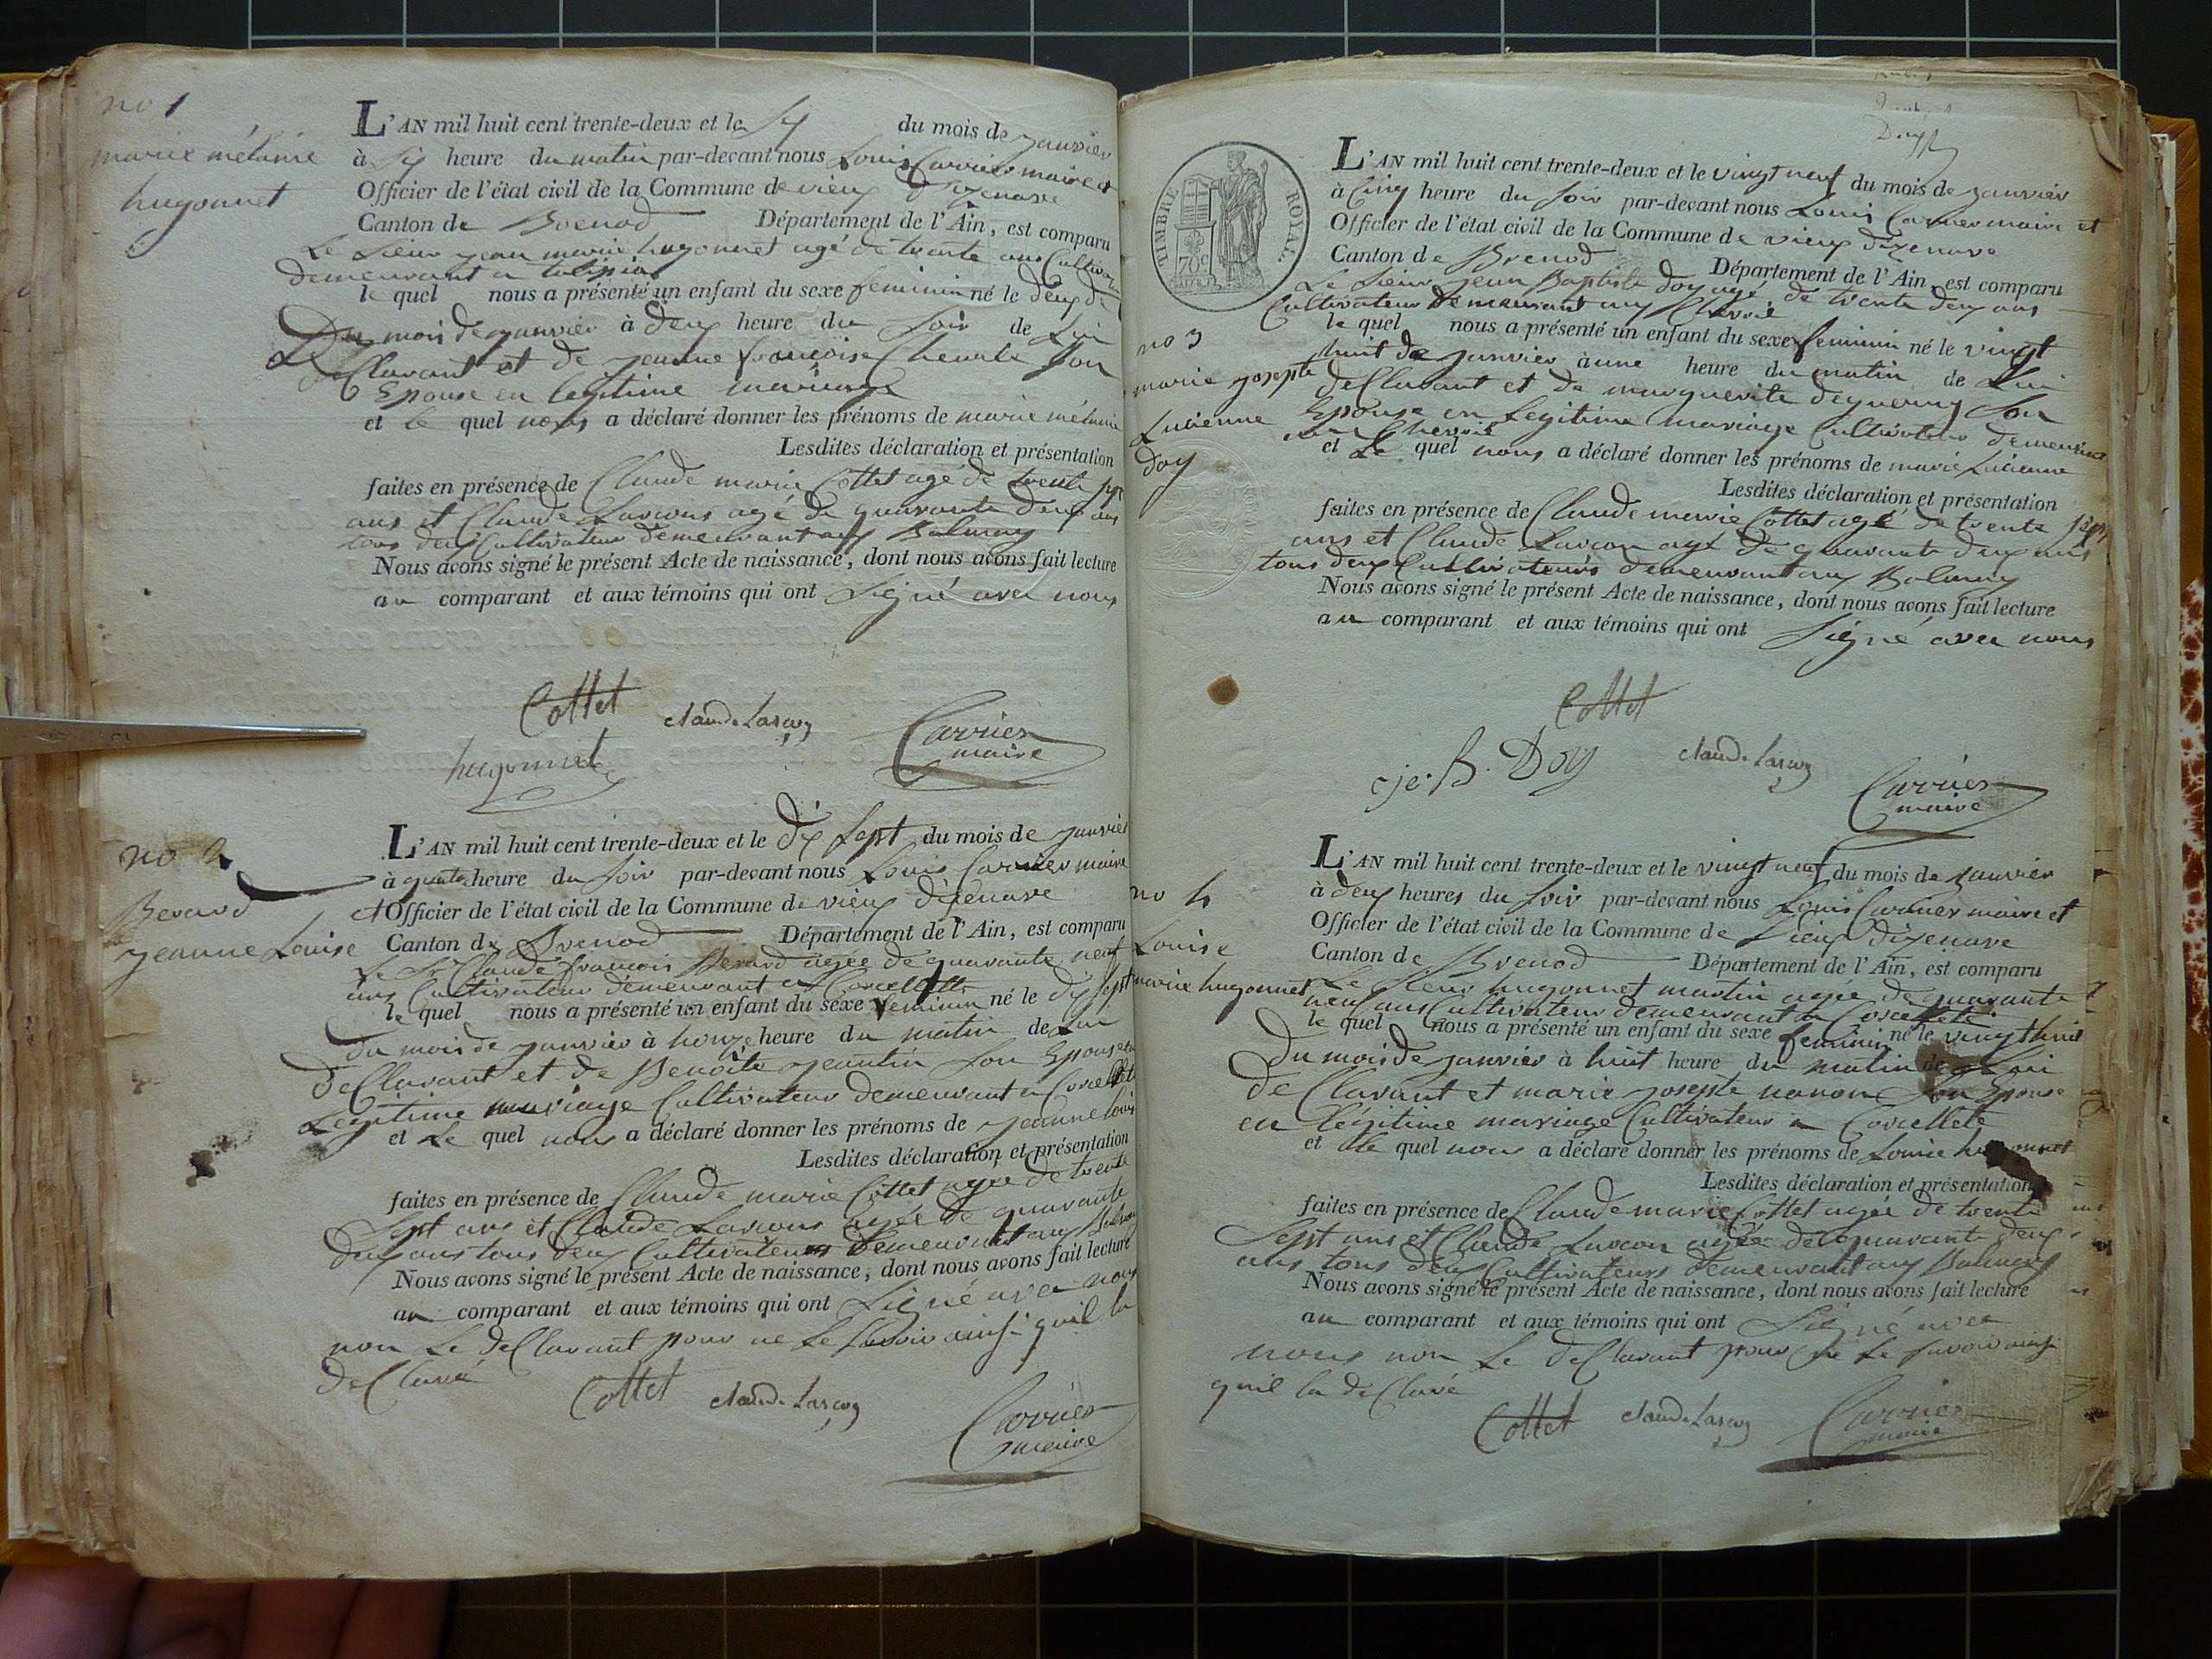 no 1
marie mélanie
hugonnet
L'AN mil huit cent trente-deux et le six du mois de janvier
à six heure du matin par-devant nous Louis Carrier maire et
Officier de l'état civil de la Commune de vieux d'izenave
Canton de Brenod Département de l'Ain, est comparu
Le Sieur jean marie hugonnet agé de trente ans Cultiva
demeurant a
le quel nous a présenté un enfant du sexe feminin né le deux de
Du mois de janvier à deux heure du soir de Lui
De Clarant et de jeanne françoise Son
Epouse en legitime mariage
et le quel nous a déclaré donner les prénoms de marie mélanie
Lesdites déclaration et présentation
faites en présence de Claude marie Cottet agé de trente sept
ans et Claude Larcous agé de quarante deux ans
tous deux Cultivateur demeurant aux Balmay
Nous avons signé le présent Acte de naissance, dont nous avons fait lecture
au comparant et aux témoins qui ont Signé avec nous
Cottet claude Larçon Carrier
maire
hugonnet
no 2
Berard
jeanne Louise
L'AN mil huit cent trente-deux et le dix sept du mois de janvier
à quatre heure du soir par-devant nous Louis Carrier maire
et Officier de l'état civil de la Commune de vieux dizenave
Canton de Brenod Département de l'Ain, est comparu
Le Sr Claude françois Berard agée de quarante neuf
ans Cultivateur demeurant a Corcellette
le quel nous a présenté un enfant du sexe feminin né le dix sept
du mois de janvier à honze heure du matin de Lui
de Clarant et de Benoite jeantin Son Epouse en
Legitime mariage Cultivateur demeurant a Corcellette
et Le quel nous a déclaré donner les prénoms de jeanne louise
Lesdites déclaration et présentation
faites en présence de Claude marie Cottet agée de trente
Sept ans et Claude Larcous agée de quarante
deux ans tous deux Cultivateurs demeurant aux Balmay
Nous avons signé le présent Acte de naissance, dont nous avons fait lecture
au comparant et aux témoins qui ont Signé avec nous
non Le deClarant pour ne Le Savoir ainsi quil la
deClaré
Cottet claude Larçon Carrier
maire
Doy
TIMBRE ROYAL
70c
L'AN mil huit cent trente-deux et le vingt neuf du mois de janvier
à Cinq heure du soir par-devant nous Louis Carrier maire et
Officier de l'état civil de la Commune de vieux dizenave
Canton de Brenod Département de l'Ain, est comparu
Le Sieur jean Baptiste doy agé de trente deux ans
Cultivateur demeurant aux Chevril
le quel nous a présenté un enfant du sexe feminin né le vingt
no 3
marie josepte
Lucienne
doy
huit de janvier à une heure du matin de Lui
deClarant et de marguerite Son
Epouse en Legitime mariage Cultivateur demeurant
aux Chevril
et Le quel nous a déclaré donner les prénoms de marie Lucienne
Lesdites déclaration et présentation
faites en présence de Claude marie Cottet agé de trente sept
ans et Claude Larcon agé de quarante deux ans
tous deux Cultivateurs demeurant aux Balmay
Nous avons signé le présent Acte de naissance, dont nous avons fait lecture
au comparant et aux témoins qui ont Signé avec nous
Cottet
je. B. Doy claude Larçon Carrier
maire
no 4
Louise
marie hugonnet
L'AN mil huit cent trente-deux et le vingt neuf du mois de janvier
à deux heures du soir par-devant nous Louis Carrier maire et
Officier de l'état civil de la Commune de Vieux dizenave
Canton de Brenod Département de l'Ain, est comparu
Le Sieur hugonnet martin agée de quarante
neuf ans Cultivateur demeurant a Corcellete
le quel nous a présenté un enfant du sexe feminin né le vingt huit
du mois de janvier à huit heure du matin de Lui
de Clarant et marie josepte nanon Son Epouse
en légitime mariage Cultivateur a Corcellete
et le quel nous a déclaré donner les prénoms de Louise hugonnet
Lesdites déclaration et présentation
faites en présence de Claude marie Cottet agée de trente
Sept ans et Claude Larcon agée de quarante deux
ans tous deux Cultivateurs demeurant aux Balmay
Nous avons signé le présent Acte de naissance, dont nous avons fait lecture
au comparant et aux témoins qui ont Signé avec
nous non Le deClarant pour ne Le savoir ainsi
quil la deClaré
Cottet claude Larçon Carrier
maire